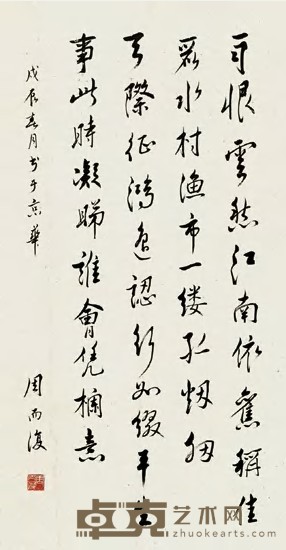 雨恨雲愁江南依舊稱佳
麗水村漁市一缕孤烟细
天際征鴻遥認行如缀平生
事此時凝睇誰會凭欄意
戊辰春月书于京華
周而復
卓克艺术网